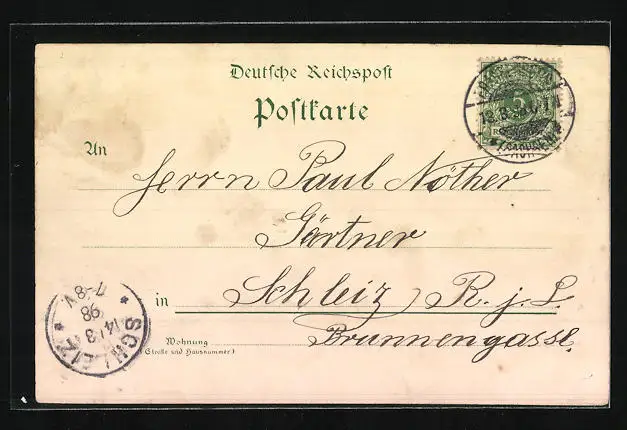 Deutsche Reichspost
Postkarte
An
Herrn Paul Nöther
Gärtner
in Schleiz R. j. L.
Brunnengasse.
Wohnung
(Straße und Hausnummer)
5
SCHLEIZ
14/3
98
7-8V.